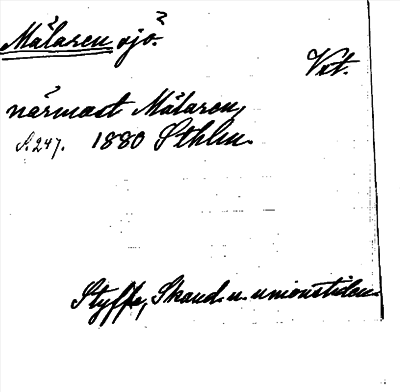 Mälaren sjö.
Vxt.
närmast Mälaren,
S. 247. 1880 Sthlm.
Styffe, Skand. u. unionstiden.